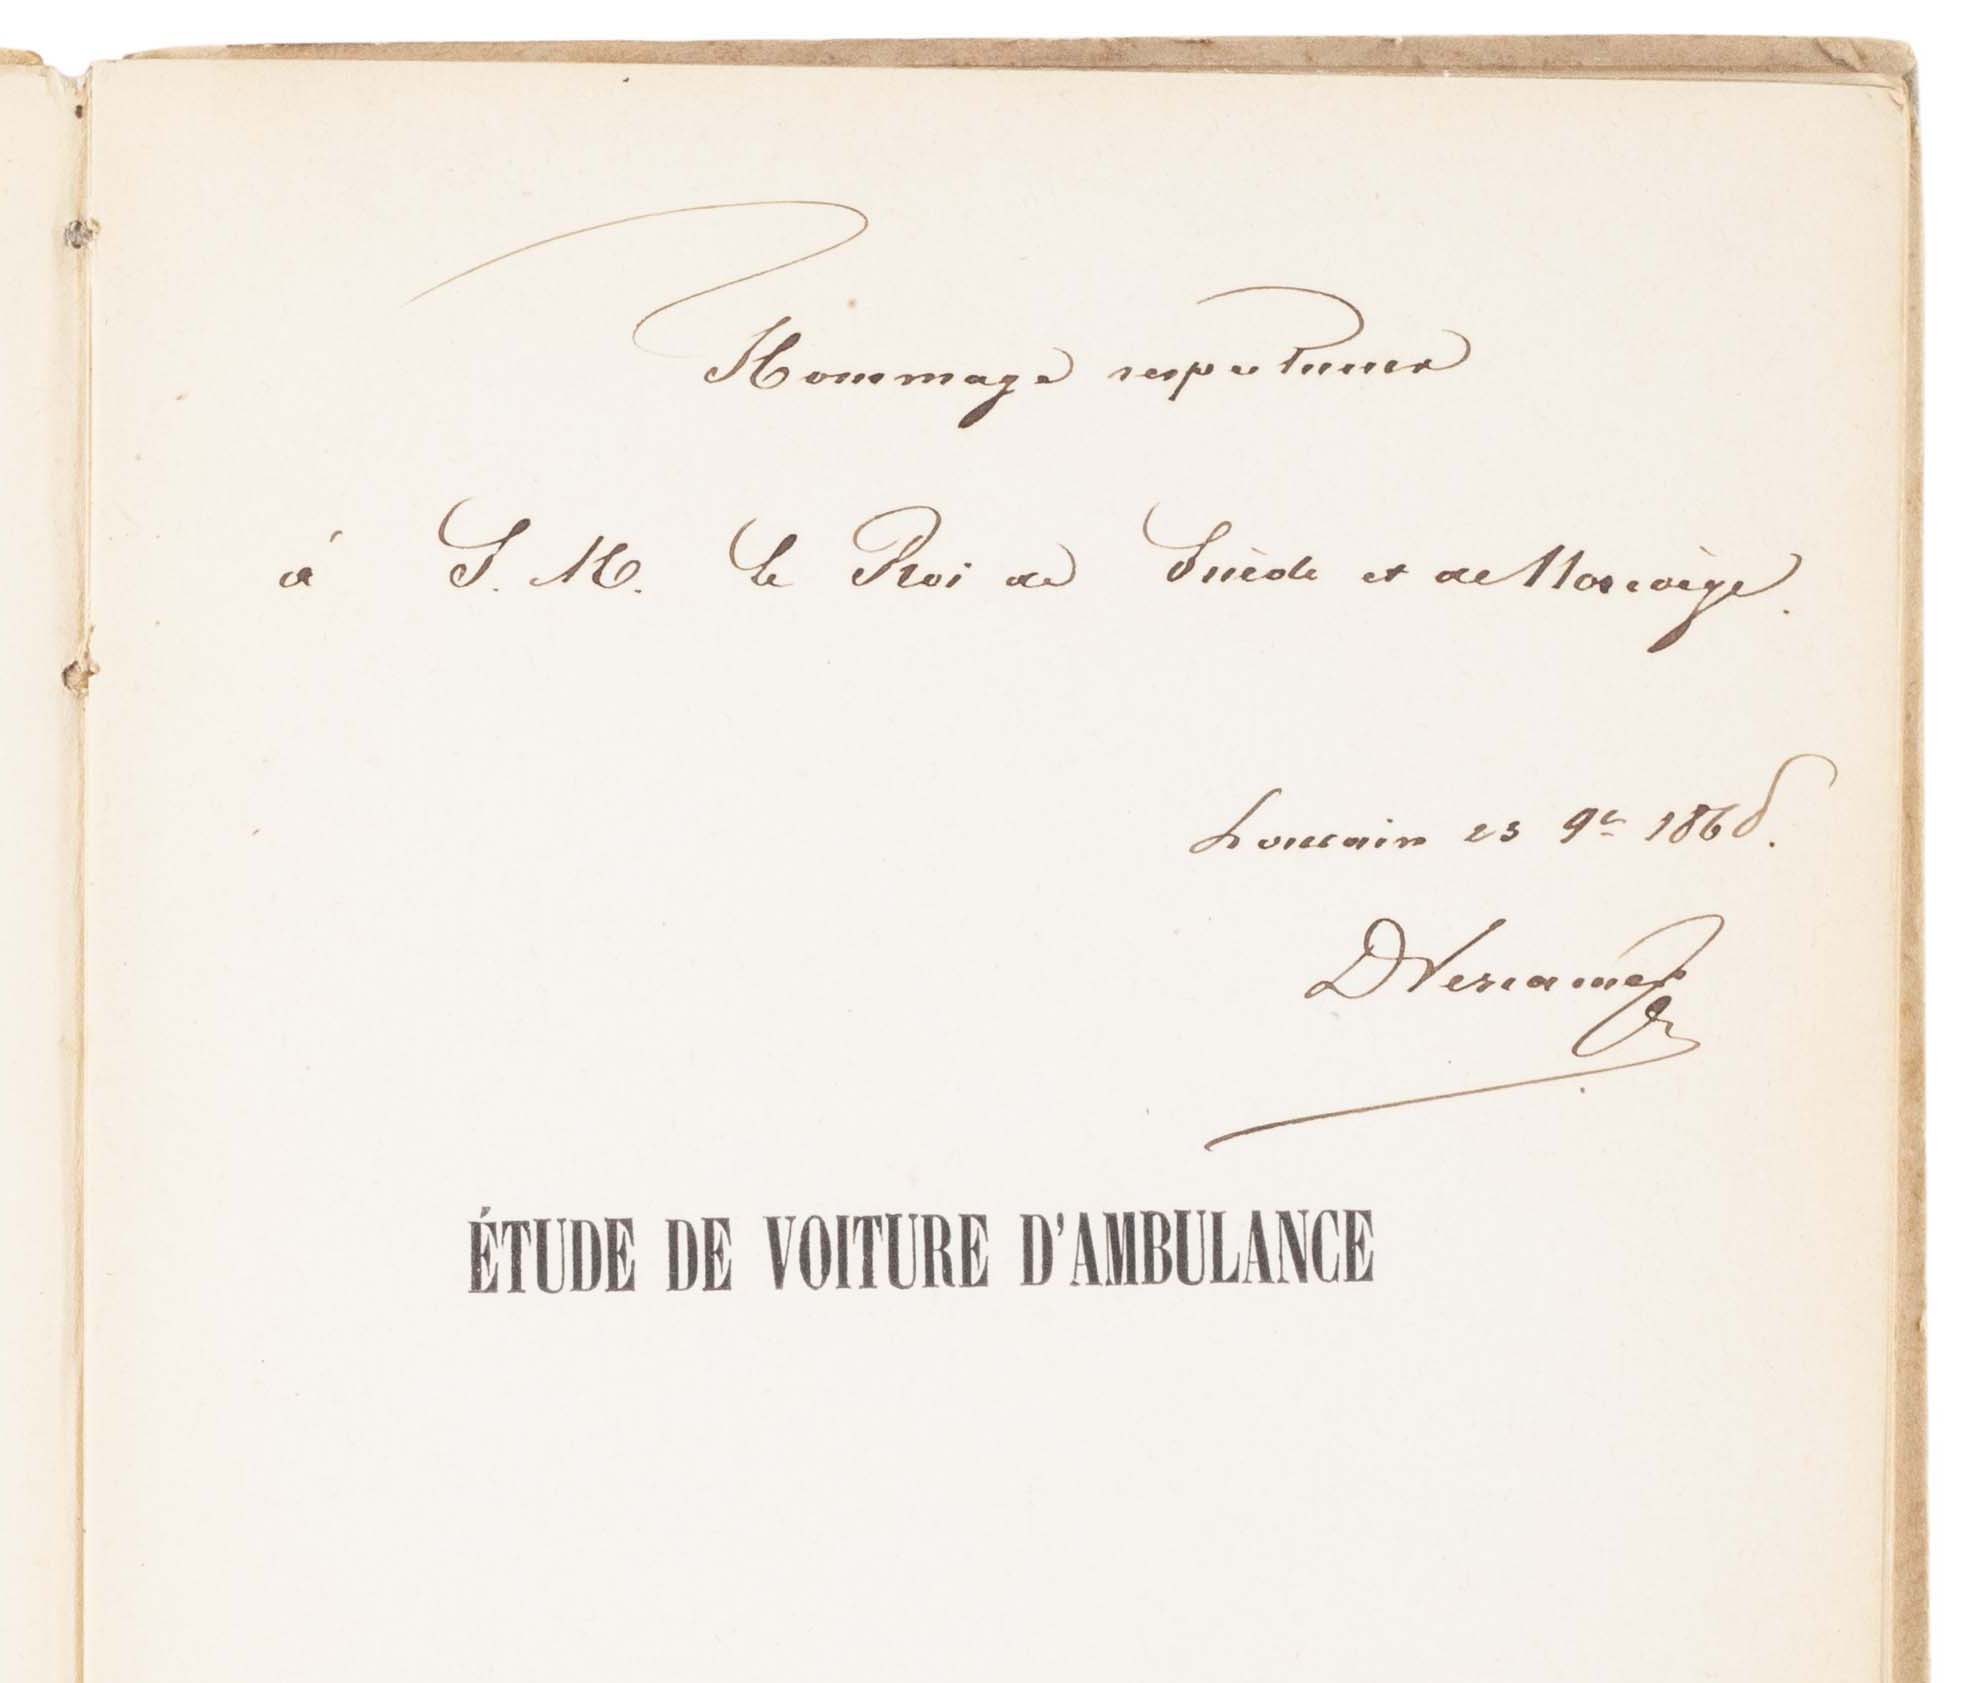 Hommage respectueux
à S. M. Le Roi de Suède et de Norwège.
Louvain 23 9bre 1868.
ÉTUDE DE VOITURE D'AMBULANCE